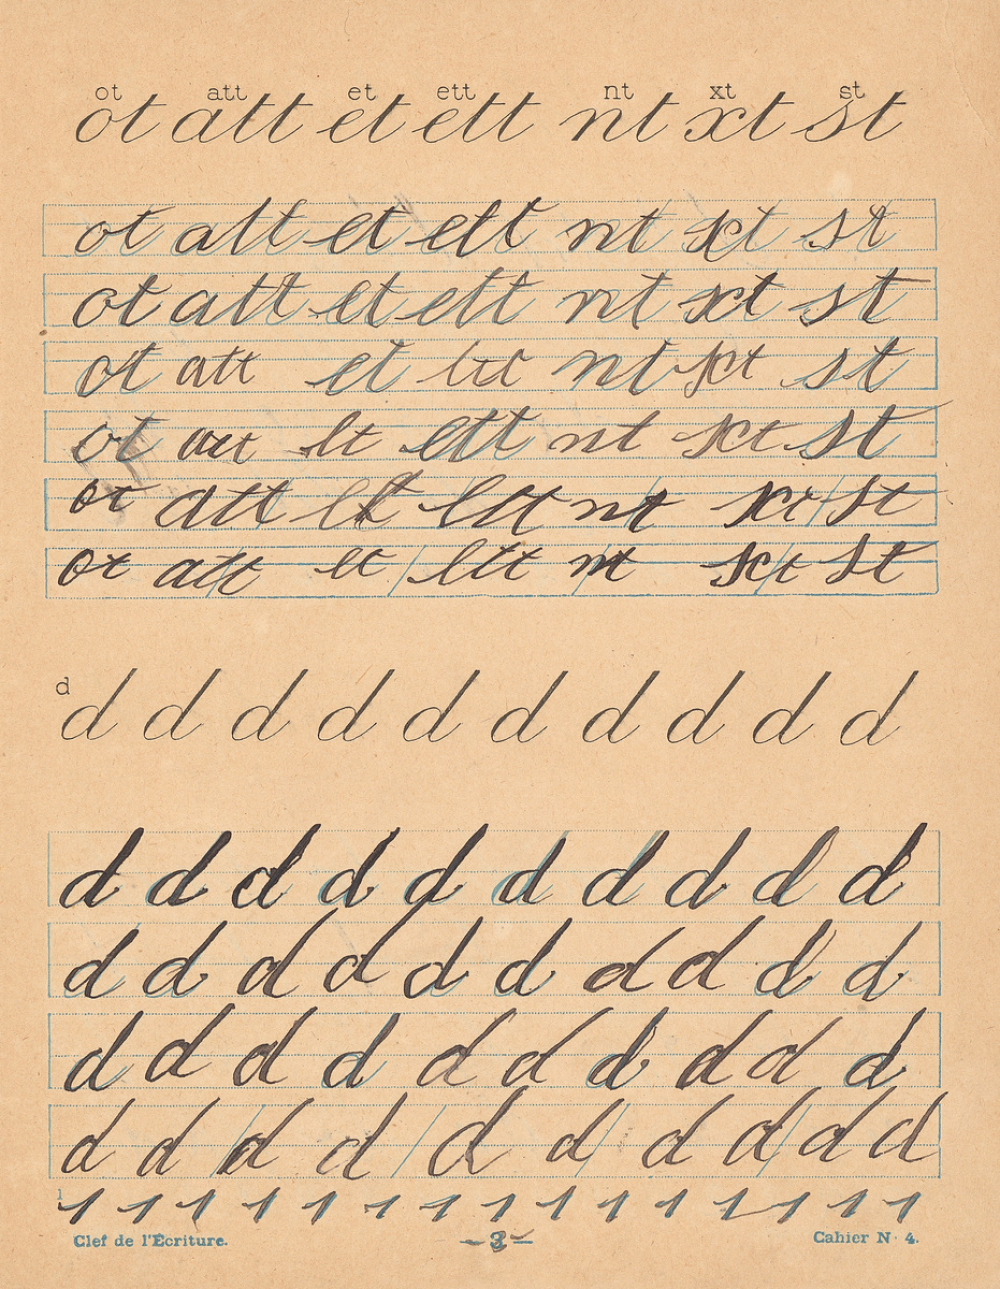 ot att et ett nt xt st
ot att et ett nt xt st
ot att et ett nt xt st
ot att et ett nt xt st
ot att et ett nt xt st
ot att et ett nt xt st
ot att et ett nt xt st
ot att et ett nt xt st
d
d d d d d d d d d d
d d d d d d d d d d
d d d d d d d d d d
d d d d d d d d d d
d d d d d d d d d d
1
1 1 1 1 1 1 1 1 1 1 1 1 1 1 1
Clef de l'Écriture. — 3 — Cahier N· 4.